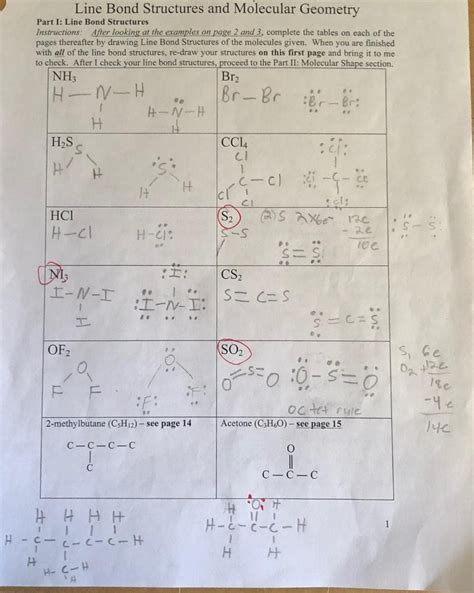 Line Bond Structures and Molecular Geometry
Part I: Line Bond Structures
Instructions: After looking at the examples on page 2 and 3, complete the tables on each of the
pages thereafter by drawing Line Bond Structures of the molecules given. When you are finished
with all of the line bond structures, re-draw your structures on this first page and bring it to me
to check. After I check your line bond structures, proceed to the Part II: Molecular Shape section.
NH3
H — N — H
H
H - N - H
H
Br2
Br — Br
:Br - Br:
H2S
S
H H
S
H H
CCl4
Cl
C - Cl
Cl Cl
:Cl:
:Cl - C - Cl:
:Cl:
HCl
H - Cl
H - Cl:
S2
(2) S 2x6e 12e
- 2e
10e
S - S
S = S
:S - S:
NI3
I - N - I
I
:I:
:I - N - I:
CS2
S = C = S
S = C = S
OF2
O
F F
:O:
:F: :F:
SO2
O = S = O
:O - S = O
Octet rule
S, 6e
O2 +12e
18e
-4e
14e
2-methylbutane (C5H12) – see page 14
C — C — C — C
C
Acetone (C3H6O) – see page 15
O
C — C — C
H H H H
H - C - C - C - C - H
H H H
H - C - H
H
H :O: H
H - C - C - C - H
H H
1